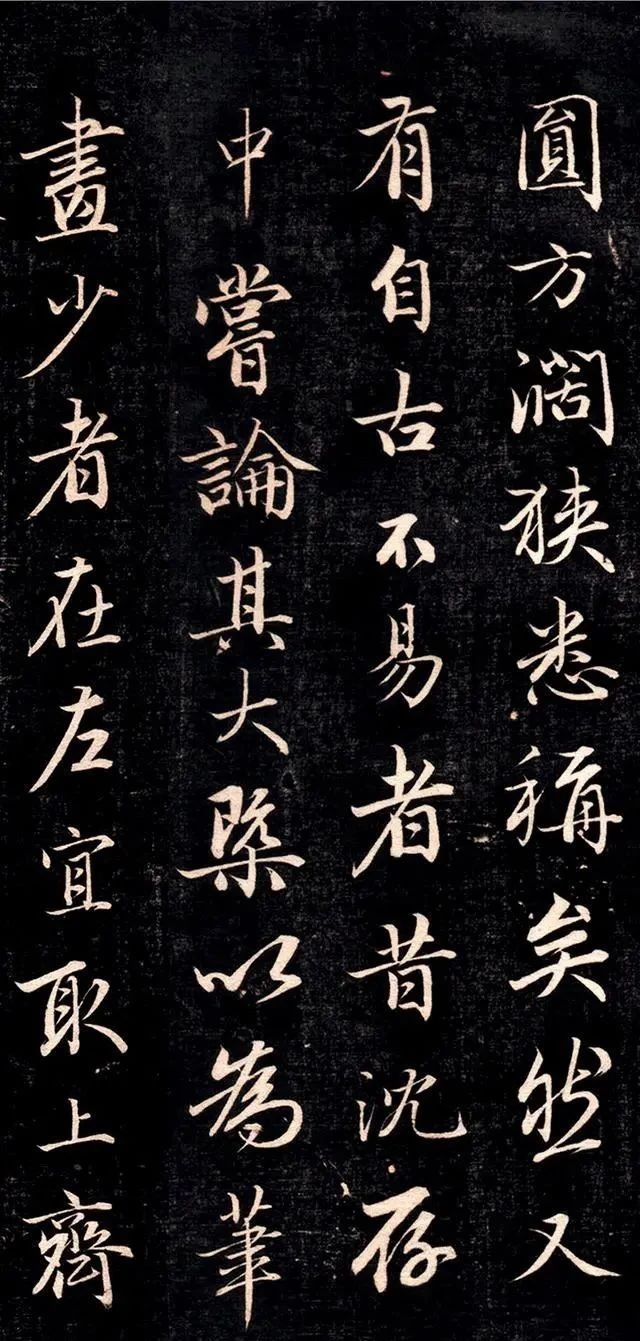 圓方濶狹悉稱矣然又
有自古不易者昔沈存
中嘗論其大槩以為筆
畫少者在左宜取上齊